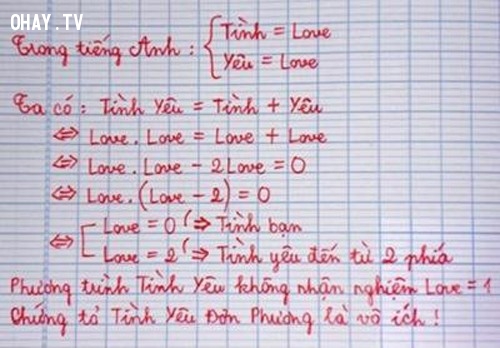 OHAY.TV
Trong tiếng Anh : { Tình = Love
Yêu = Love
Ta có : Tình Yêu = Tình + Yêu
⇔ Love . Love = Love + Love
⇔ Love . Love - 2 Love = 0
⇔ Love . (Love - 2) = 0
⇔ [ Love = 0 (⇒ Tình bạn
Love = 2 (⇒ Tình yêu đến từ 2 phía
Phương trình Tình Yêu không nhận nghiệm Love = 1
Chứng tỏ Tình Yêu Đơn Phương là vô ích !